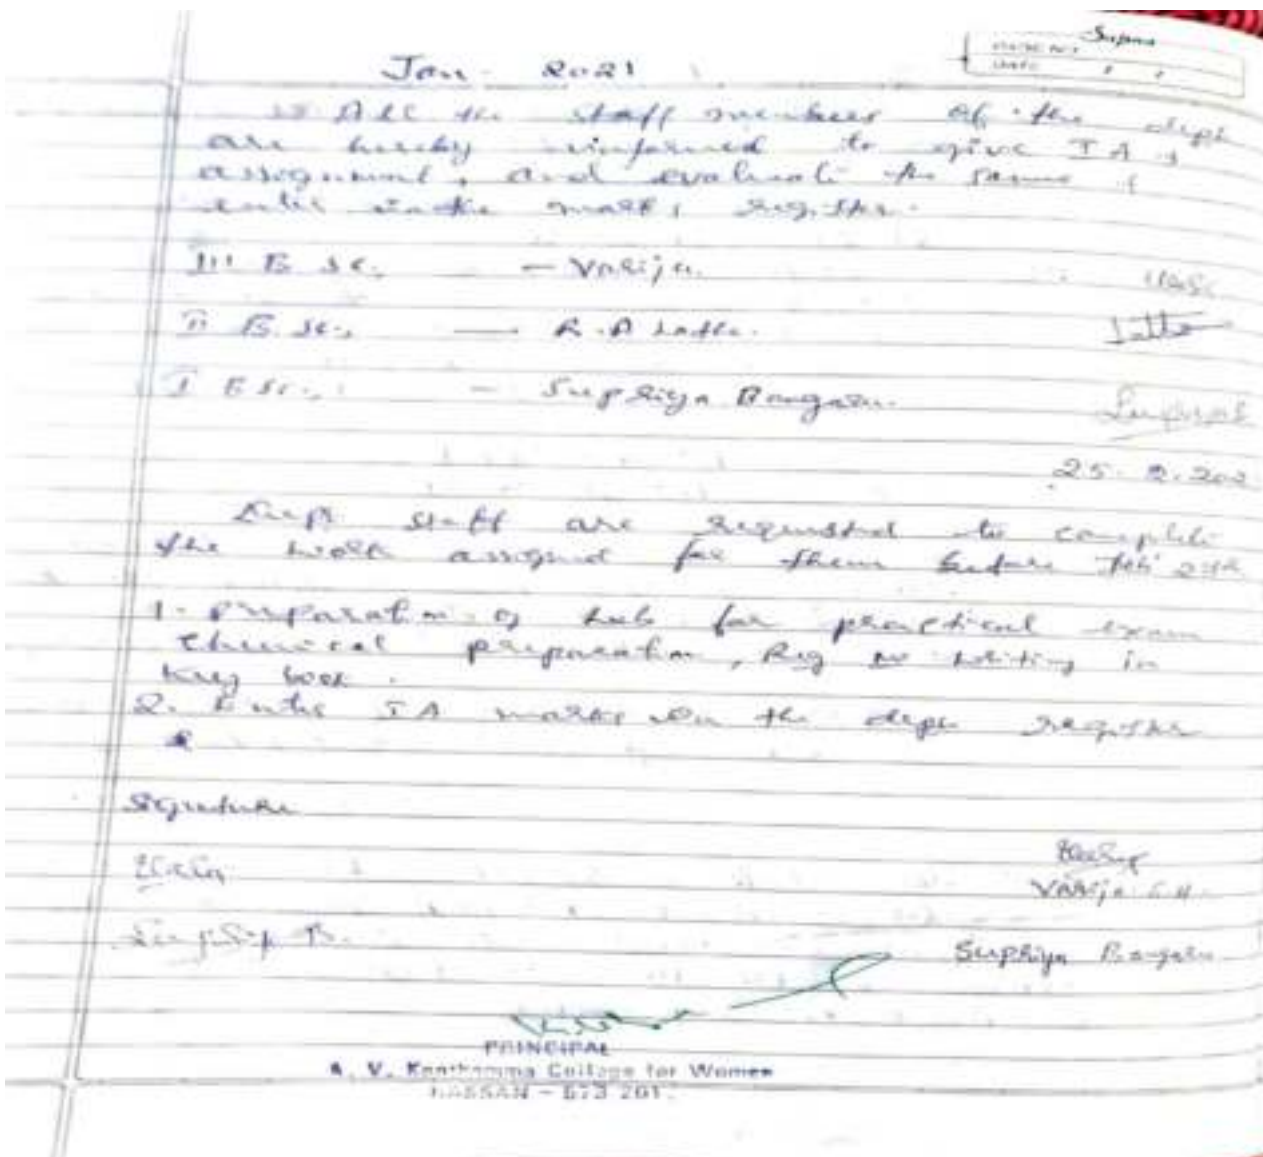 Supna
PAGE NO
DATE / /
Jan - 2021
All the staff members of the dept
are hereby informed to give IA &
assignment, and evaluate the same &
enter in the marks register.
III B Sc. - Varija.
II B.Sc., - R.A
I B Sc., - Supriya Bangaru.
25.2.202
Dept staff are requested to complete
the work assigned for them before Feb
1. Preparation of lab for practical exam
chemical preparation, Reg no writing in
Key book.
2. Enter IA marks in the dept register
Signature
Varija
Supriya Bangaru
PRINCIPAL
A. V. Kanthamma College for Women
HASSAN - 573 201.